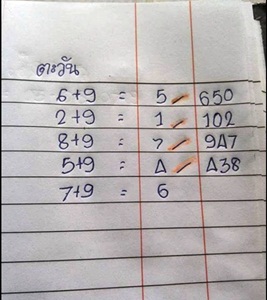 ตะวัน
6+9 = 5 ✓ 650
2+9 = 1 ✓ 102
8+9 = 7 ✓ 947
5+9 = 4 ✓ 438
7+9 = 6